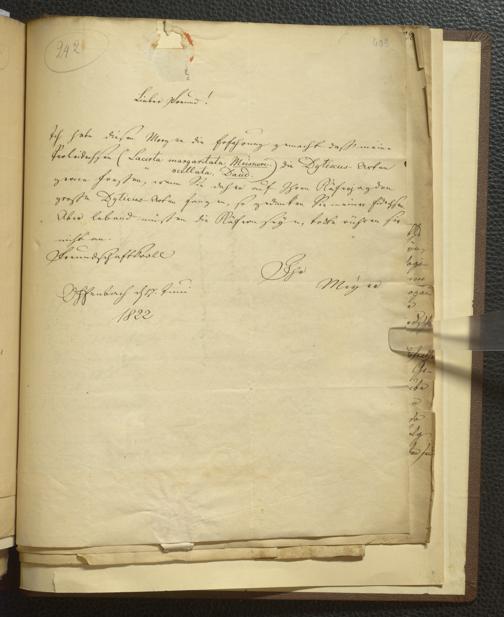 242
403
Lieber Freund!
Ich habe diesen Morgen die Erfahrung gemacht daß meine
Perleidechsen (Lacerta margaritata, Meissner.) die Dytiscus-Arten
ocellata, Daud.
gerne fressen, wenn Sie daher auf Ihren Käferjagden
große Dytiscus-Arten fangen, so gedenken Sie meiner Eidechsen
Aber lebend müssen die Käfer seyn, todte rühren sie
nicht an.
Freundschaftsvoll
Ihr
Meyer
Offenbach d. 17. Juni
1822